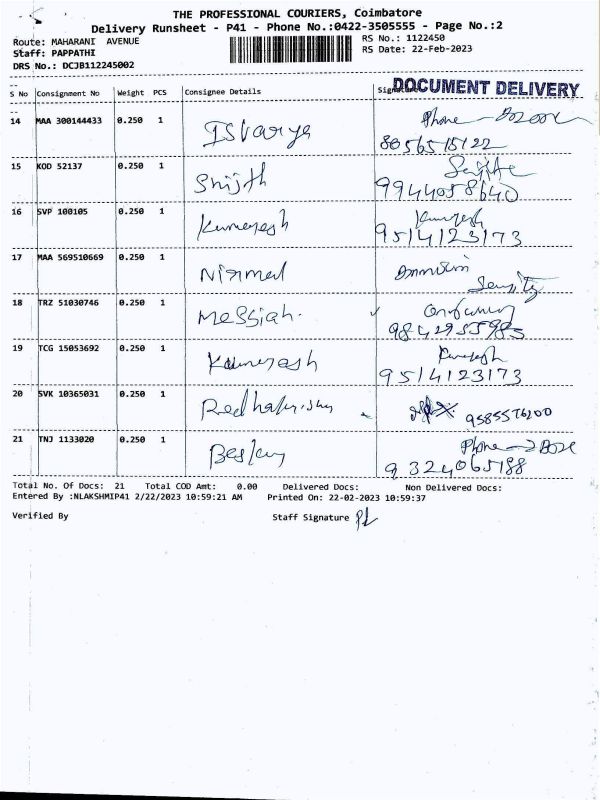 THE PROFESSIONAL COURIERS, Coimbatore
Delivery Runsheet - P41 - Phone No.:0422-3505555 - Page No.:2
Route: MAHARANI AVENUE
RS No.: 1122450
Staff: PAPPATHI
RS Date: 22-Feb-2023
DRS No.: DCJB112245002
DOCUMENT DELIVERY
S No Consignment No Weight PCS Consignee Details
14 MAA 300144433 0.250 1 Phone
8056515122
15 KOD 52137 0.250 1 Snijth
9944058640
16 SVP 100105 0.250 1 Kumaresh
9514123173
17 MAA 569510669 0.250 1 Nirmal
18 TRZ 51030746 0.250 1 Messiah.
9842955985
19 TCG 15053692 0.250 1
9514123173
20 SVK 10365031 0.250 1
21 TNJ 1133020 0.250 1 Phone
9324065188
Total No. Of Docs: 21 Total COD Amt: 0.00 Delivered Docs: Non Delivered Docs:
Entered By :NLAKSHMIP41 2/22/2023 10:59:21 AM Printed On: 22-02-2023 10:59:37
Verified By Staff Signature